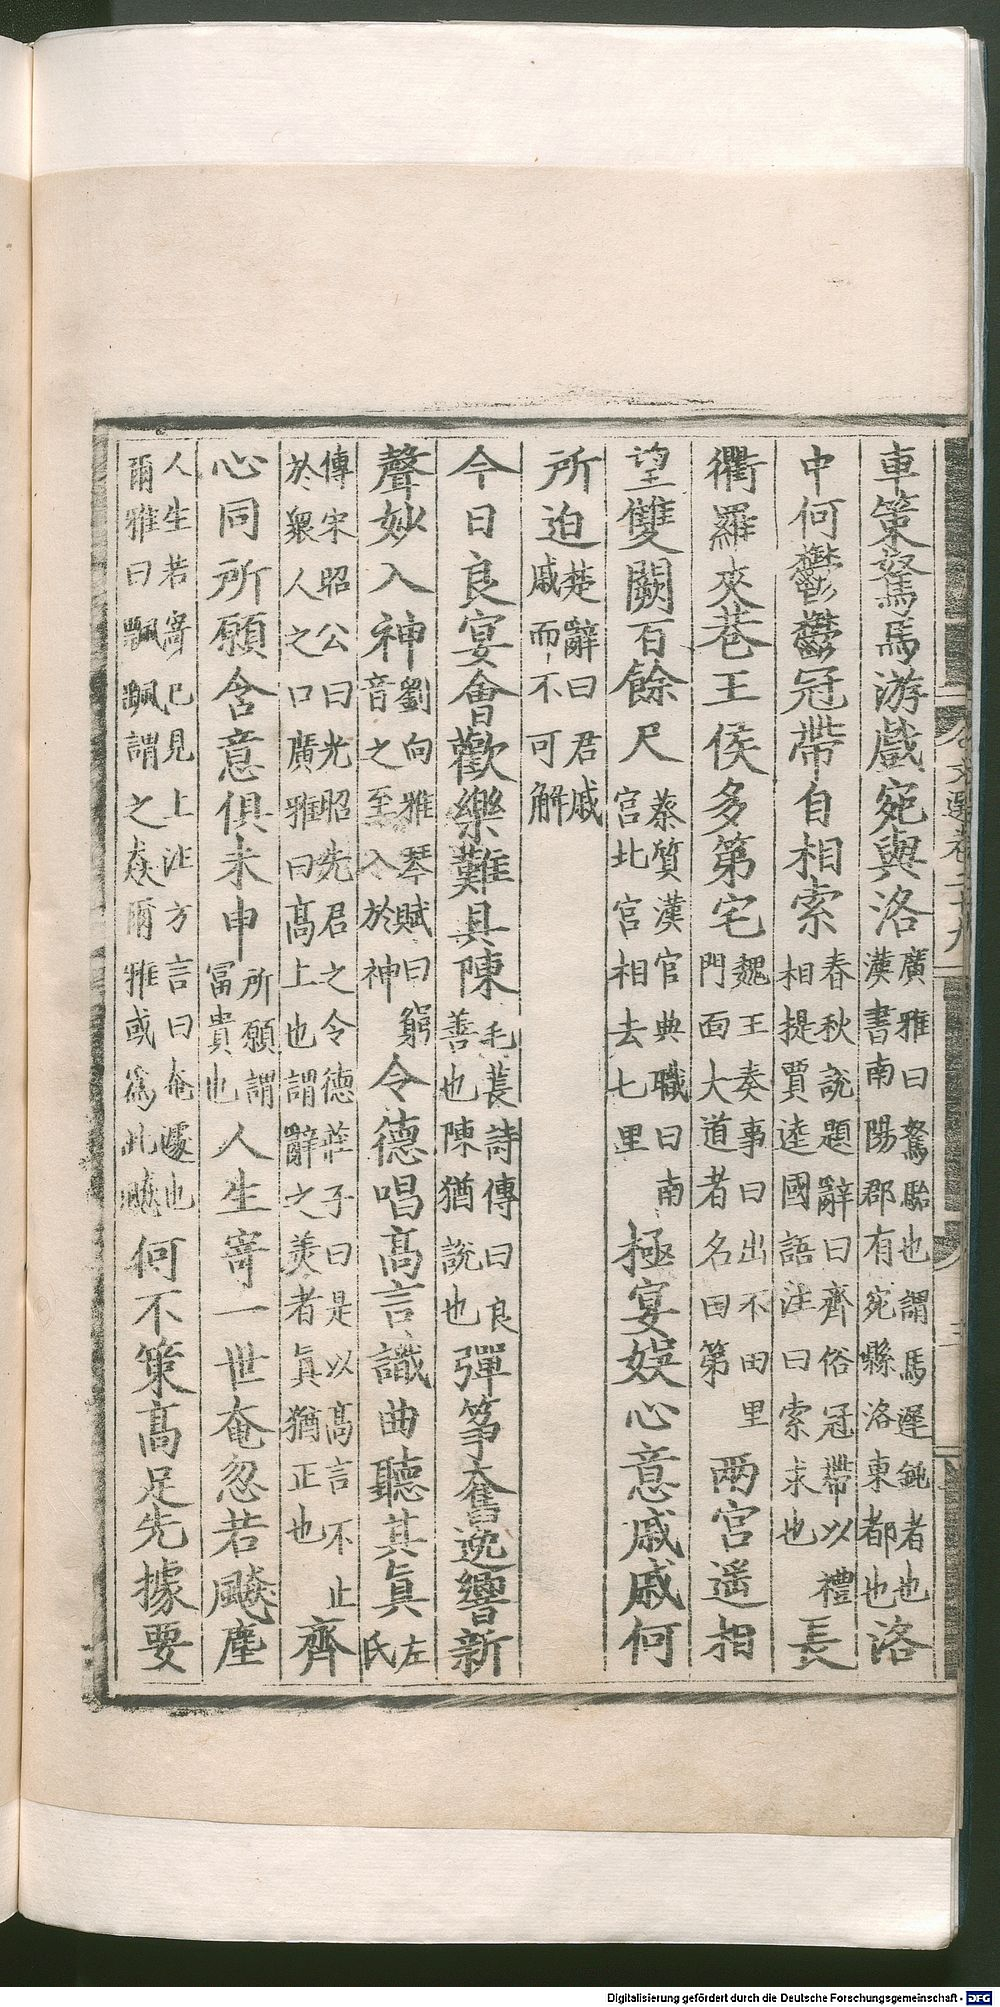 車策駑馬游戲宛與洛廣雅曰駑駘也謂馬遲鈍者也漢書南陽郡有宛縣洛東都也洛
中何鬱鬱冠帶自相索春秋說題辭曰齊俗冠帶以禮相提賈逵國語注曰索求也長
衢羅夾巷王侯多第宅魏王奏事曰出不由里門面大道者名曰第兩宮遥相
望雙闕百餘尺蔡質漢官典職曰南宫北宫相去七里極宴娛心意戚戚何
所迫楚辭曰君戚戚而不可解
今日良宴會歡樂難具陳毛萇詩傳曰良善也陳猶說也彈筝奮逸響新
聲妙入神劉向雅琴賦曰窮音之至入於神令德唱髙言識曲聽其眞左氏
傳宋昭公曰光昭先君之令德莊子曰是以髙言不止於衆人之口廣雅曰髙上也謂辭之美者眞猶正也齊
心同所願含意俱未申所願謂富貴也人生寄一世奄忽若飇塵
人生若寄已見上注方言曰奄遽也爾雅曰飄颻謂之猋爾雅或爲此飇何不策髙足先據要
文選卷二十九
Digitalisierung gefördert durch die Deutsche Forschungsgemeinschaft - DFG